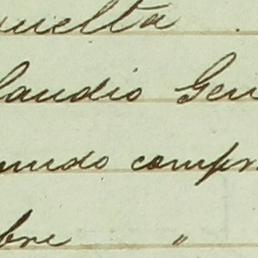 uelta
laudio Gen
mundo compr
bre "